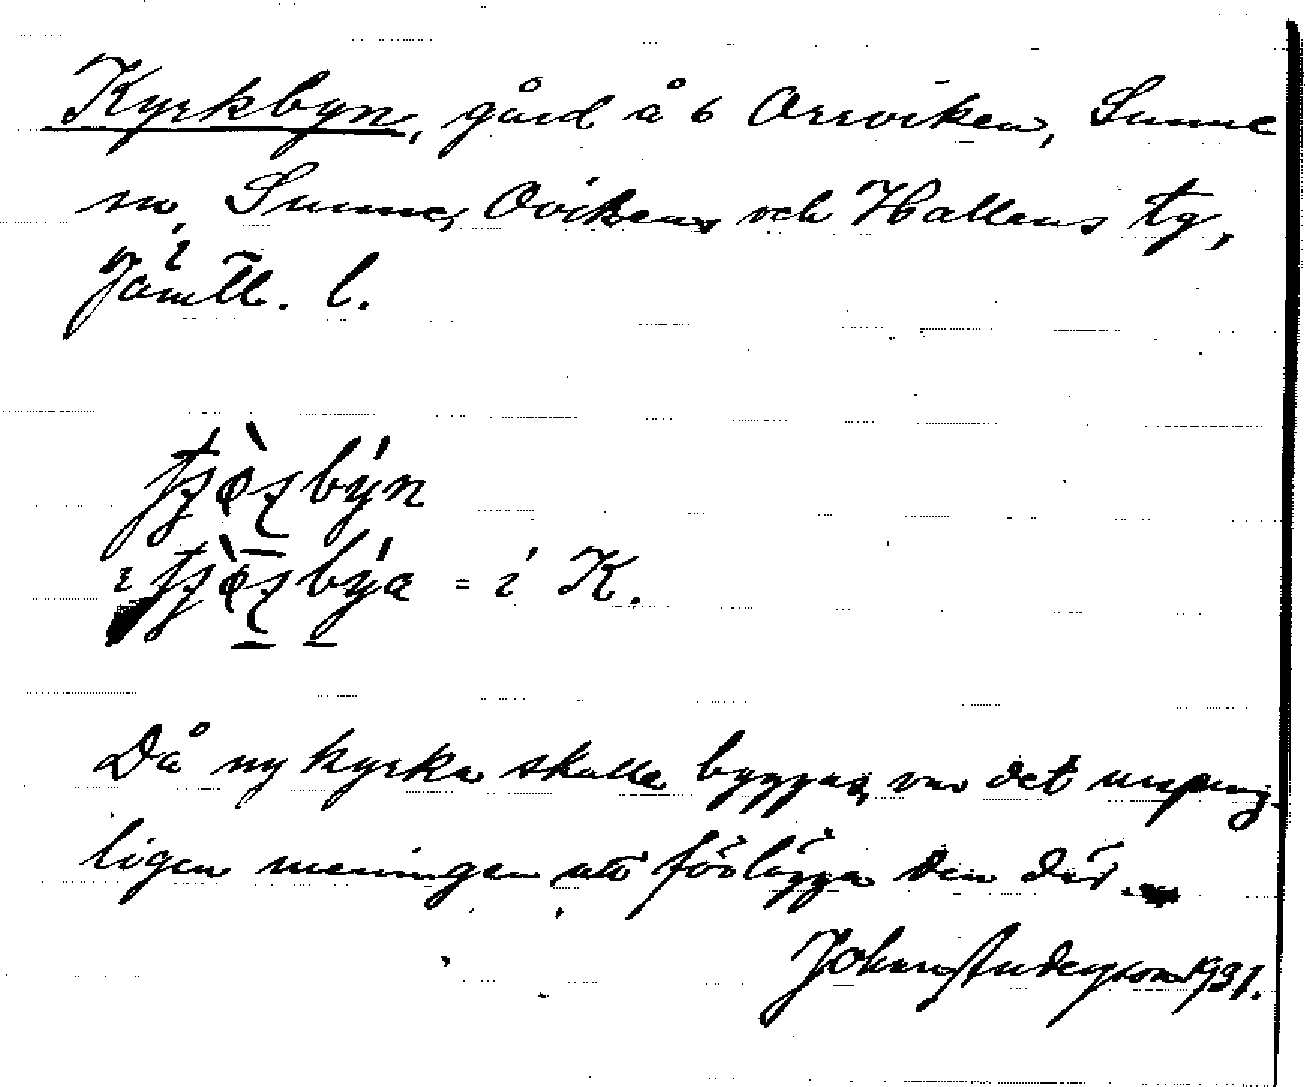 Kyrkbyn, gård å 6 Orrviken, Sunne
sn, Sunne, Ovikens och Hallens tg,
Jämtl. l.
býn
býa = i K.
Då ny kyrka skulle byggas, var det ursprung-
ligen meningen att förlägga den där.
Johan Anderson 1931.